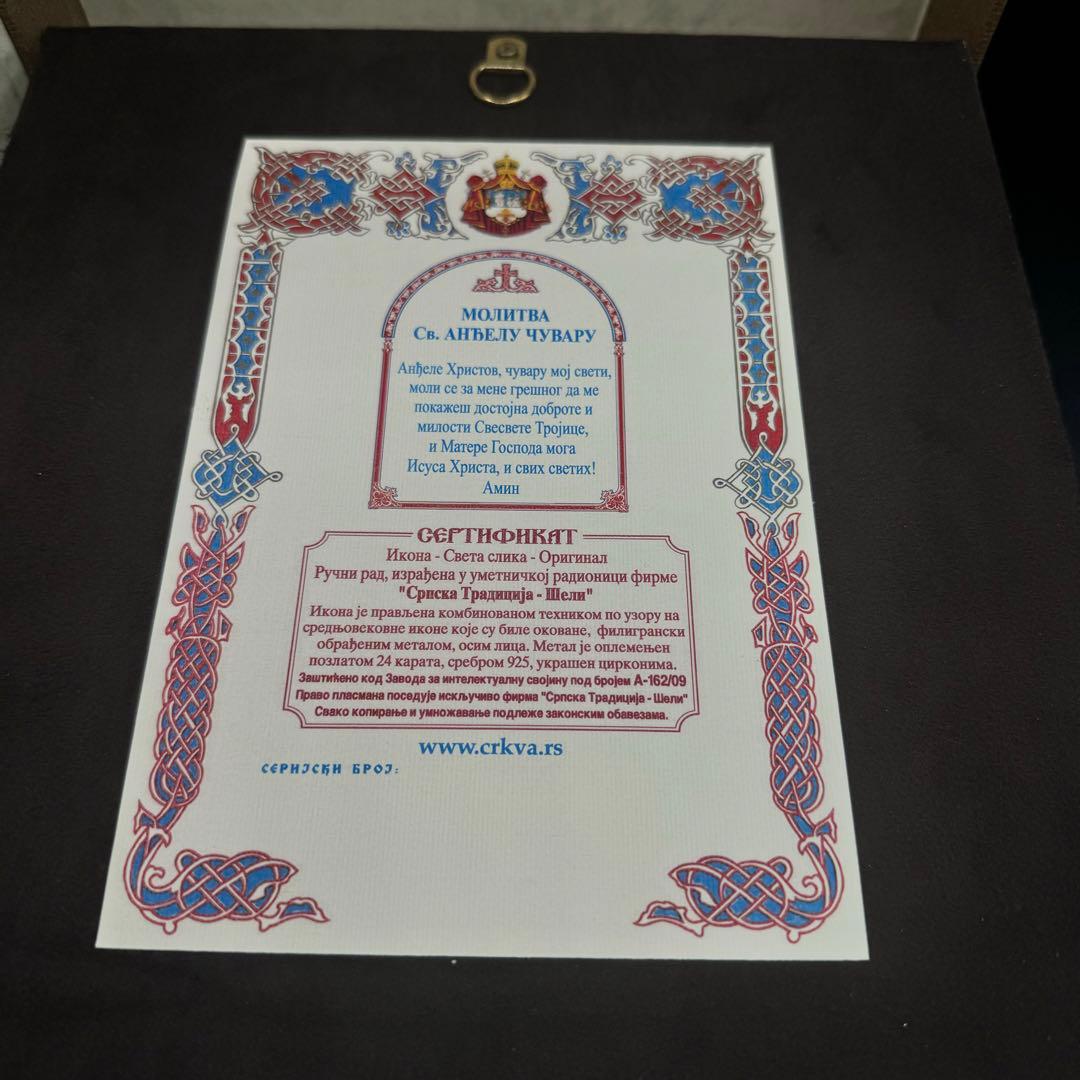 МОЛИТВА
Св. АНЂЕЛУ ЧУВАРУ
Анђеле Христов, чувару мој свети,
моли се за мене грешног да ме
покажеш достојна доброте и
милости Свесвете Тројице,
и Матере Господа мога
Исуса Христа, и свих светих!
Амин
СЕРТИФИКАТ
Икона - Света слика - Оригинал
Ручни рад, израђена у уметничкој радионици фирме
"Српска Традиција - Шели"
Икона је прављена комбинованом техником по узору на
средњовековне иконе које су биле оковане, филигрански
обрађеним металом, осим лица. Метал је оплемењен
позлатом 24 карата, сребром 925, украшен цирконима.
Заштићено код Завода за интелектуалну својину под бројем А-162/09
Право пласмана поседује искључиво фирма "Српска Традиција - Шели"
Свако копирање и умножавање подлеже законским обавезама.
www.crkva.rs
СЕРИЈСКИ БРОЈ: